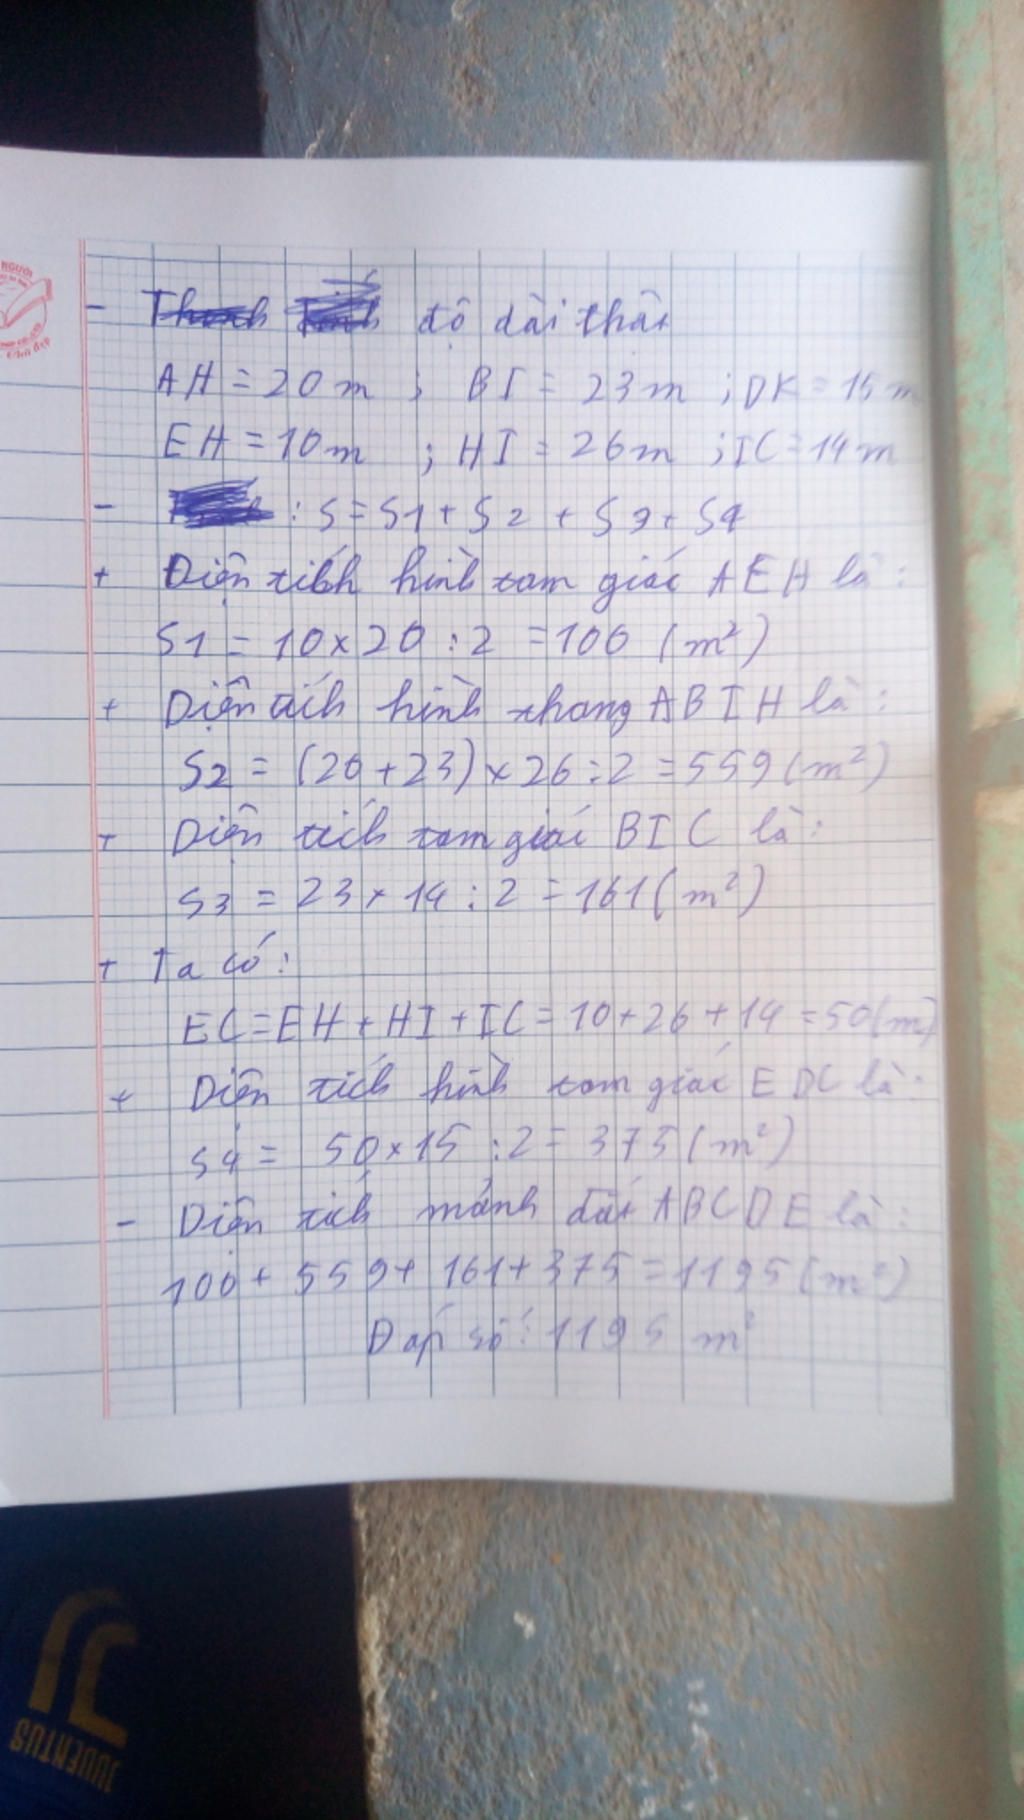 NGƯỜI
- độ dài thật
AH = 20 m ; BI = 23 m ; DK = 15 m
EH = 10 m ; HI = 26 m ; IC = 14 m
- : S = S1 + S2 + S3 + S4
+ Diện tích hình tam giác AEH là :
S1 = 10 x 20 : 2 = 100 (m²)
+ Diện tích hình thang ABIH là :
S2 = (20 + 23) x 26 : 2 = 559 (m²)
+ Diện tích tam giác BIC là :
S3 = 23 x 14 : 2 = 161 (m²)
+ Ta có :
EC = EH + HI + IC = 10 + 26 + 14 = 50 (m)
+ Diện tích hình tam giác EDC là :
S4 = 50 x 15 : 2 = 375 (m²)
- Diện tích mảnh đất ABCDE là :
100 + 559 + 161 + 375 = 1195 (m²)
Đáp số : 1195 m²
JUVENTUS